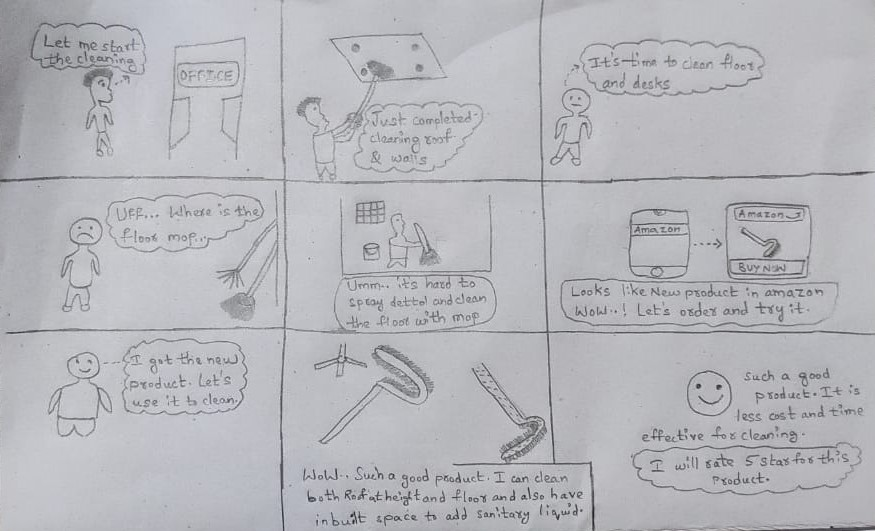 Let me start
the cleaning
OFFICE
Just completed
cleaning roof
& walls
It's time to clean floor
and desks
Uff... Where is the
floor mop..
Umm.. it's hard to
spray dettol and clean
the floor with mop
Amazon
Amazon
BUY NOW
Looks like New product in amazon
WOW..! Let's order and try it.
I got the new
product. Let's
use it to clean.
WOW.. Such a good product. I can clean
both Roof at height and floor and also have
inbuilt space to add sanitary liquid.
Such a good
product. It is
less cost and time
effective for cleaning.
I will rate 5 star for this
Product.